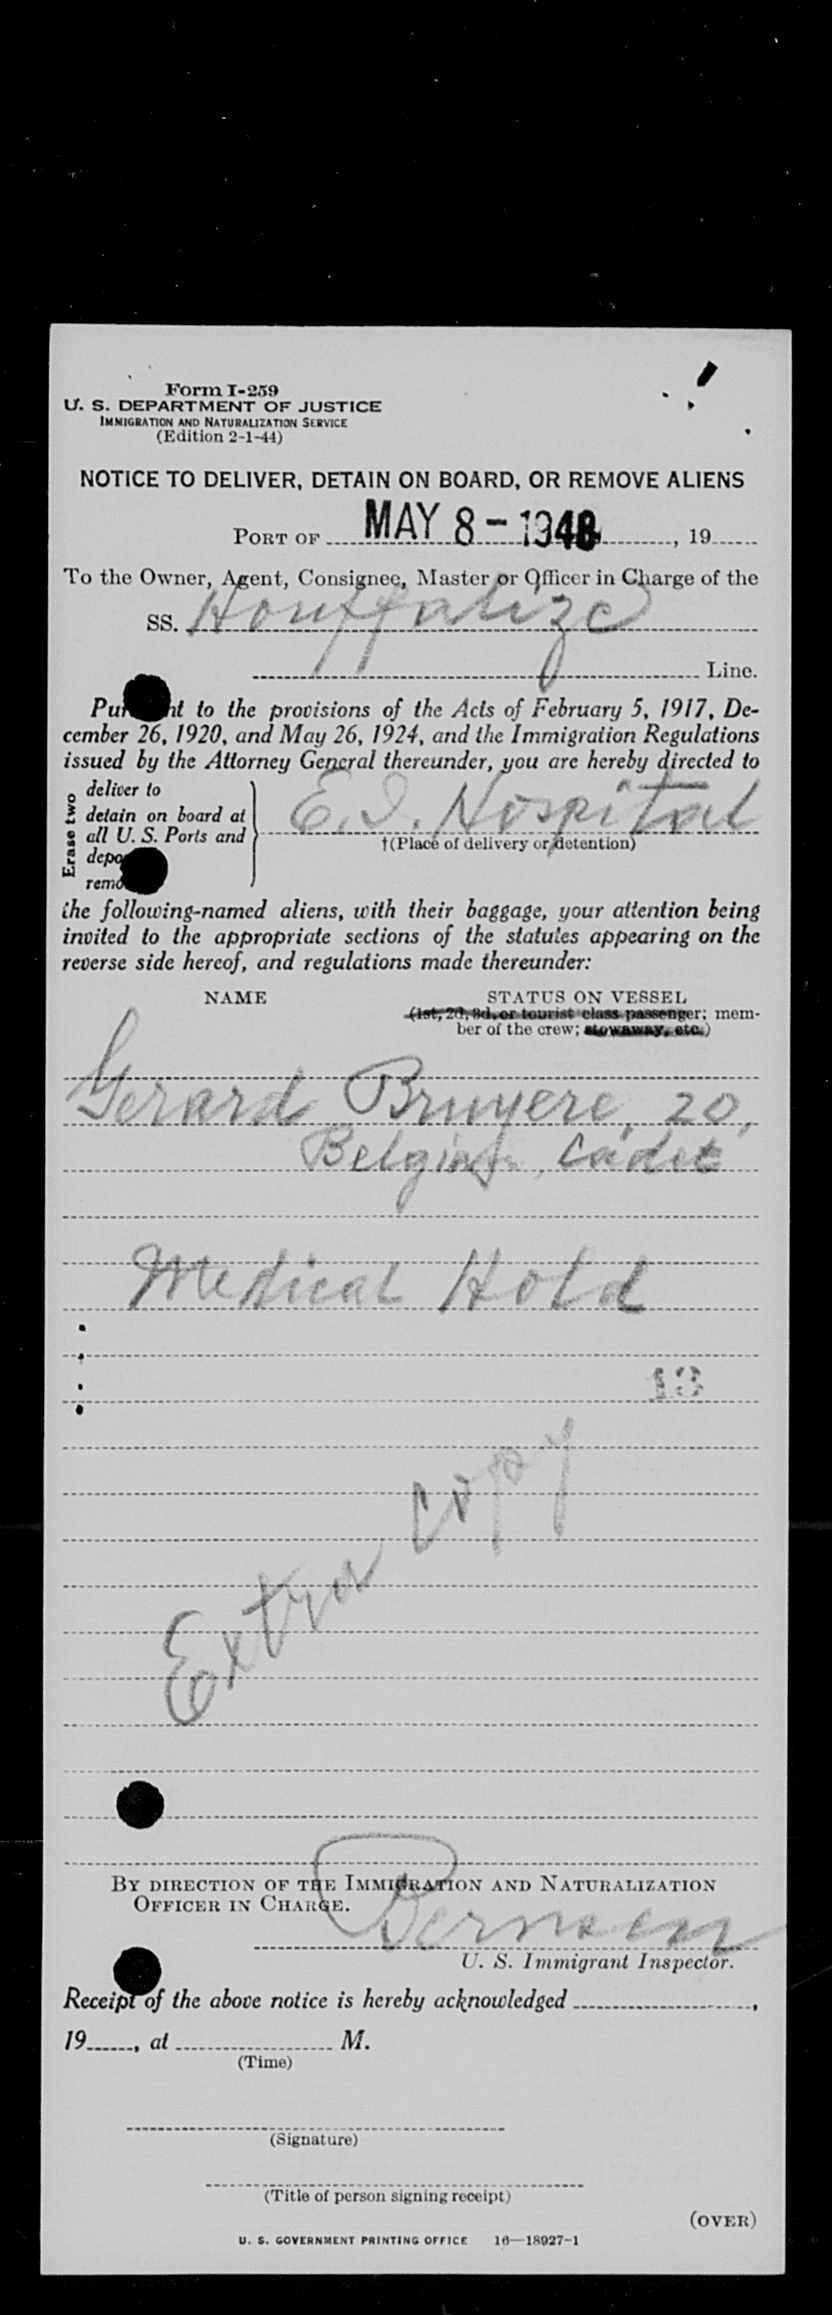 Form I-259
U. S. DEPARTMENT OF JUSTICE
IMMIGRATION AND NATURALIZATION SERVICE
(Edition 2-1-44)
NOTICE TO DELIVER, DETAIN ON BOARD, OR REMOVE ALIENS
PORT OF MAY 8 - 1948, 19
To the Owner, Agent, Consignee, Master or Officer in Charge of the
SS. Houffalize
Line.
Pursuant to the provisions of the Acts of February 5, 1917, De-
cember 26, 1920, and May 26, 1924, and the Immigration Regulations
issued by the Attorney General thereunder, you are hereby directed to
Erase two
deliver to
detain on board at
all U. S. Ports and
E. I. Hospital
†(Place of delivery or detention)
the following-named aliens, with their baggage, your attention being
invited to the appropriate sections of the statutes appearing on the
reverse side hereof, and regulations made thereunder:
NAME
STATUS ON VESSEL
(1st, 2d, 3d, or tourist class passenger; mem-
ber of the crew; stowaway, etc.)
Gerard Bruyere, 20,
Cadet
Medical Hold
13
Extra Copy
BY DIRECTION OF THE IMMIGRATION AND NATURALIZATION
OFFICER IN CHARGE.
U. S. Immigrant Inspector.
Receipt of the above notice is hereby acknowledged ,
19 , at M.
(Time)
(Signature)
(Title of person signing receipt)
(OVER)
U. S. GOVERNMENT PRINTING OFFICE 16—18927-1